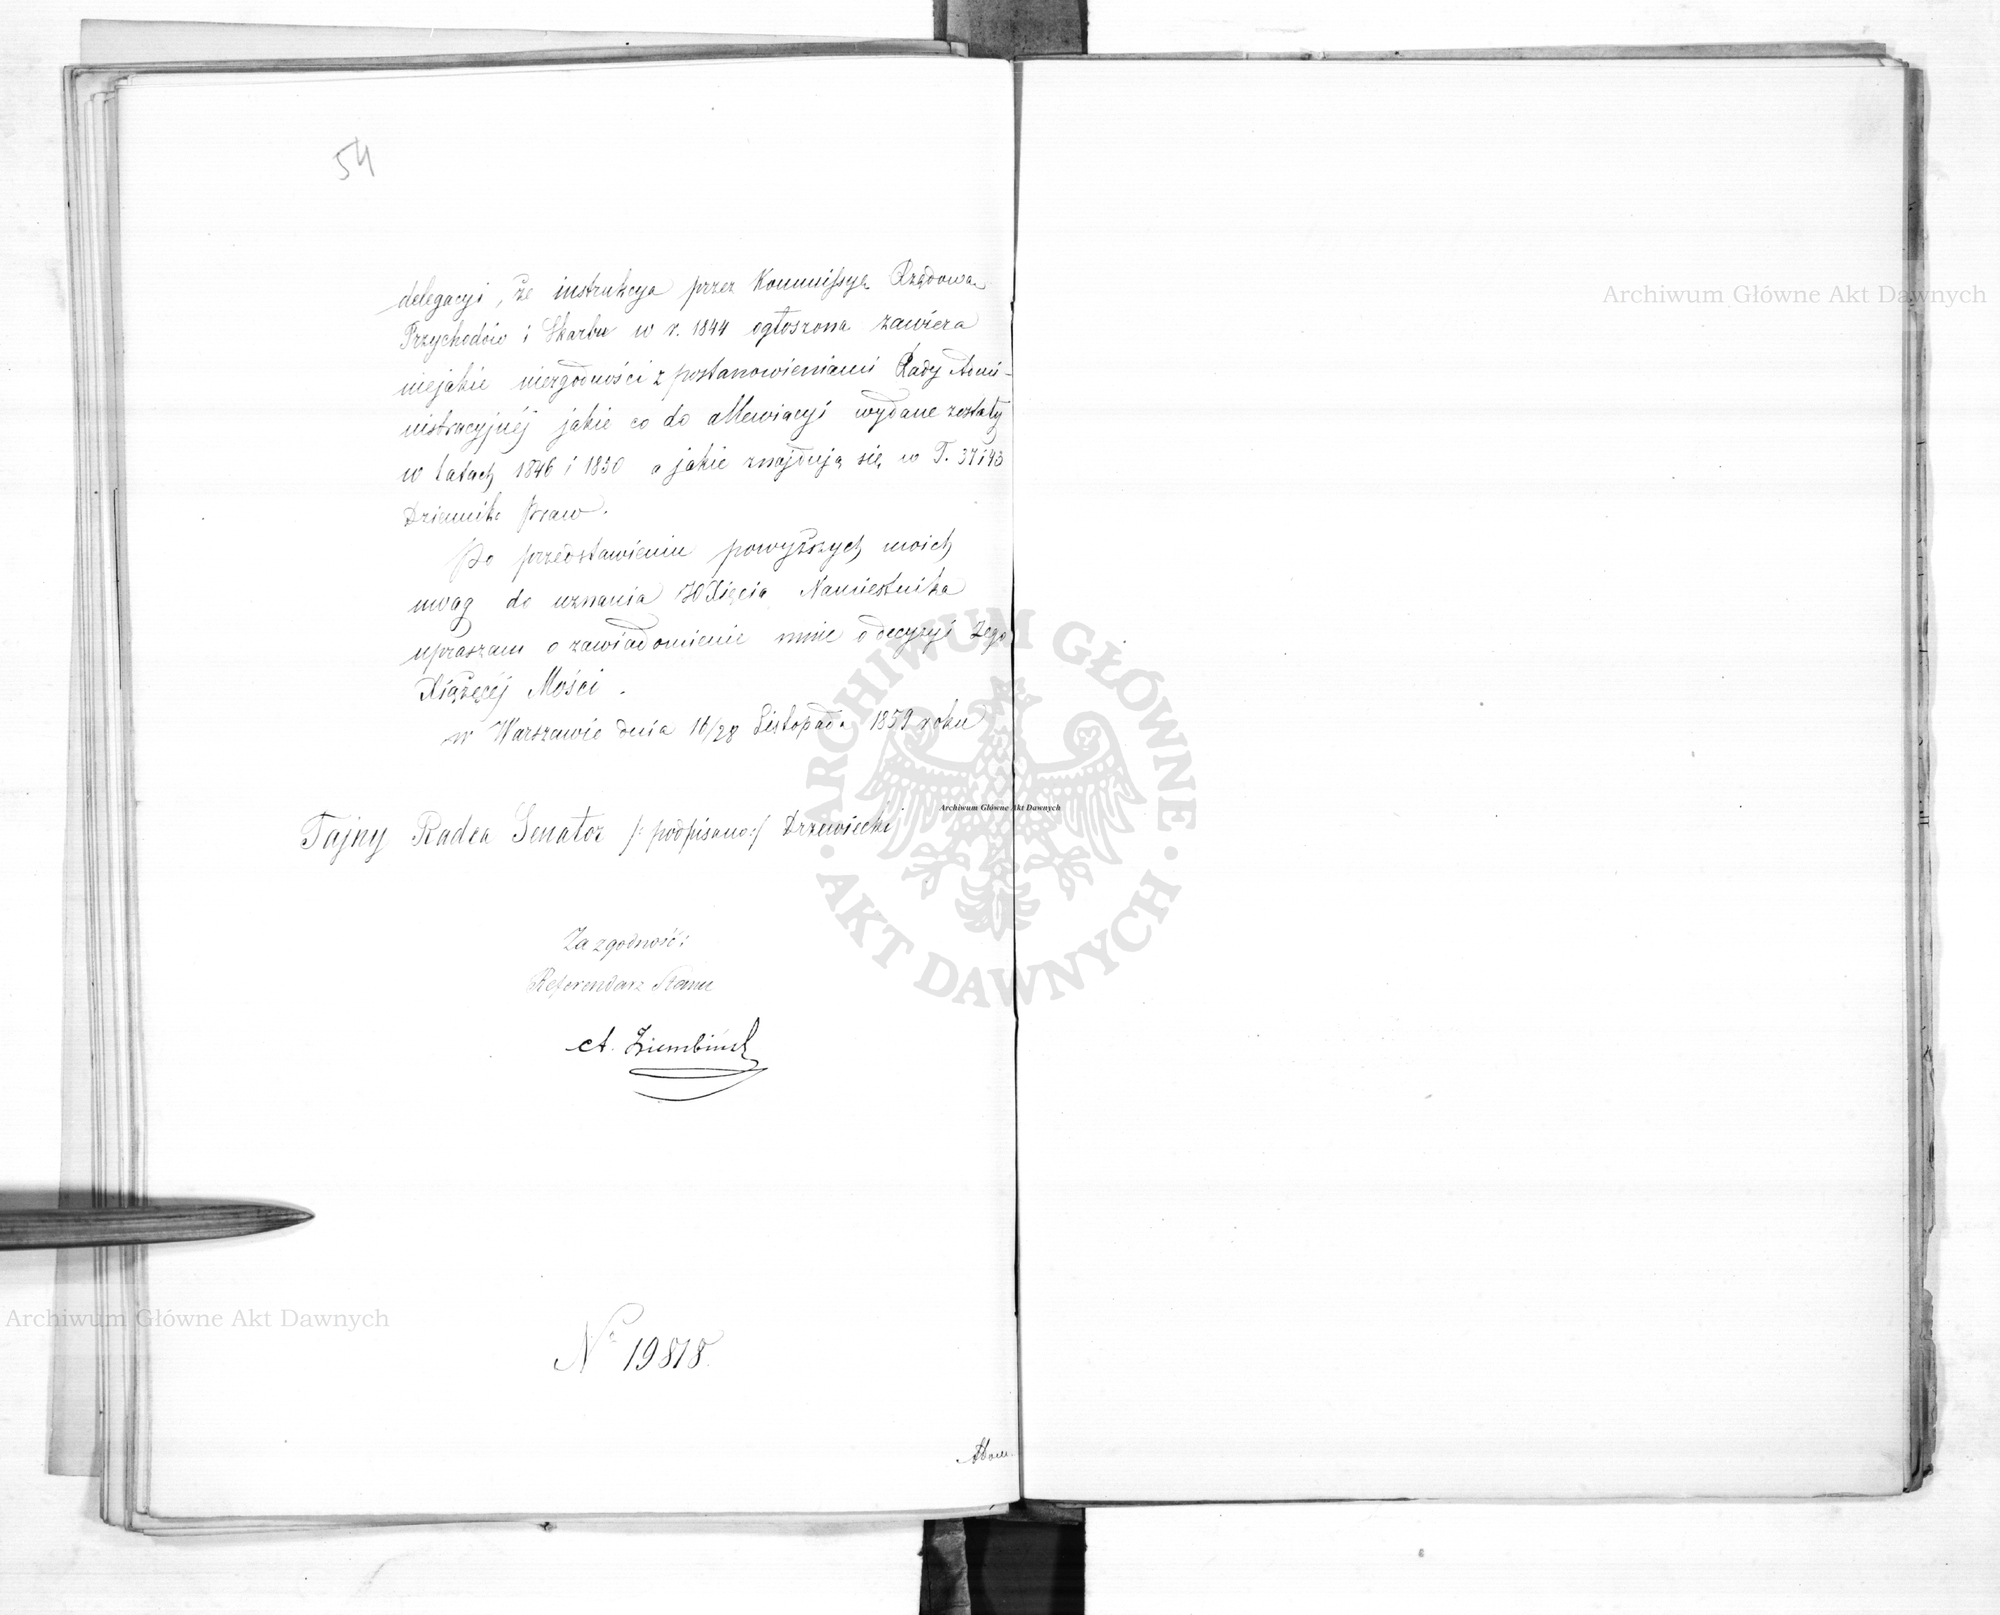 54
delegacyi, że instrukcya przez Kommissyą Rządową
Przychodów i Skarbu w r. 1844 ogłoszona zawiera
niejakie niezgodności z postanowieniami Rady Admi-
nistracyjnéj jakie co do allewiacyi wydane zostały
w latach 1846 i 1850 a jakie znajdują się w T. 37 i 43
Dziennika Praw.
Po przedstawieniu powyższych moich
uwag do uznania JO Xięcia Namiestnika
upraszam o zawiadomienie mnie o decyzyi Jego
Xiążęcéj Mości.
w Warszawie dnia 16/28 Listopada 1859 roku
Tajny Radca Senator /:podpisano:/ Drzewiecki
Za zgodność:
Referendarz Stanu
A. Ziembiński
No 19818.
Adam.
Archiwum Główne Akt Dawnych
Archiwum Główne Akt Dawnych
Archiwum Główne Akt Dawnych
ARCHIWUM GŁÓWNE
AKT DAWNYCH